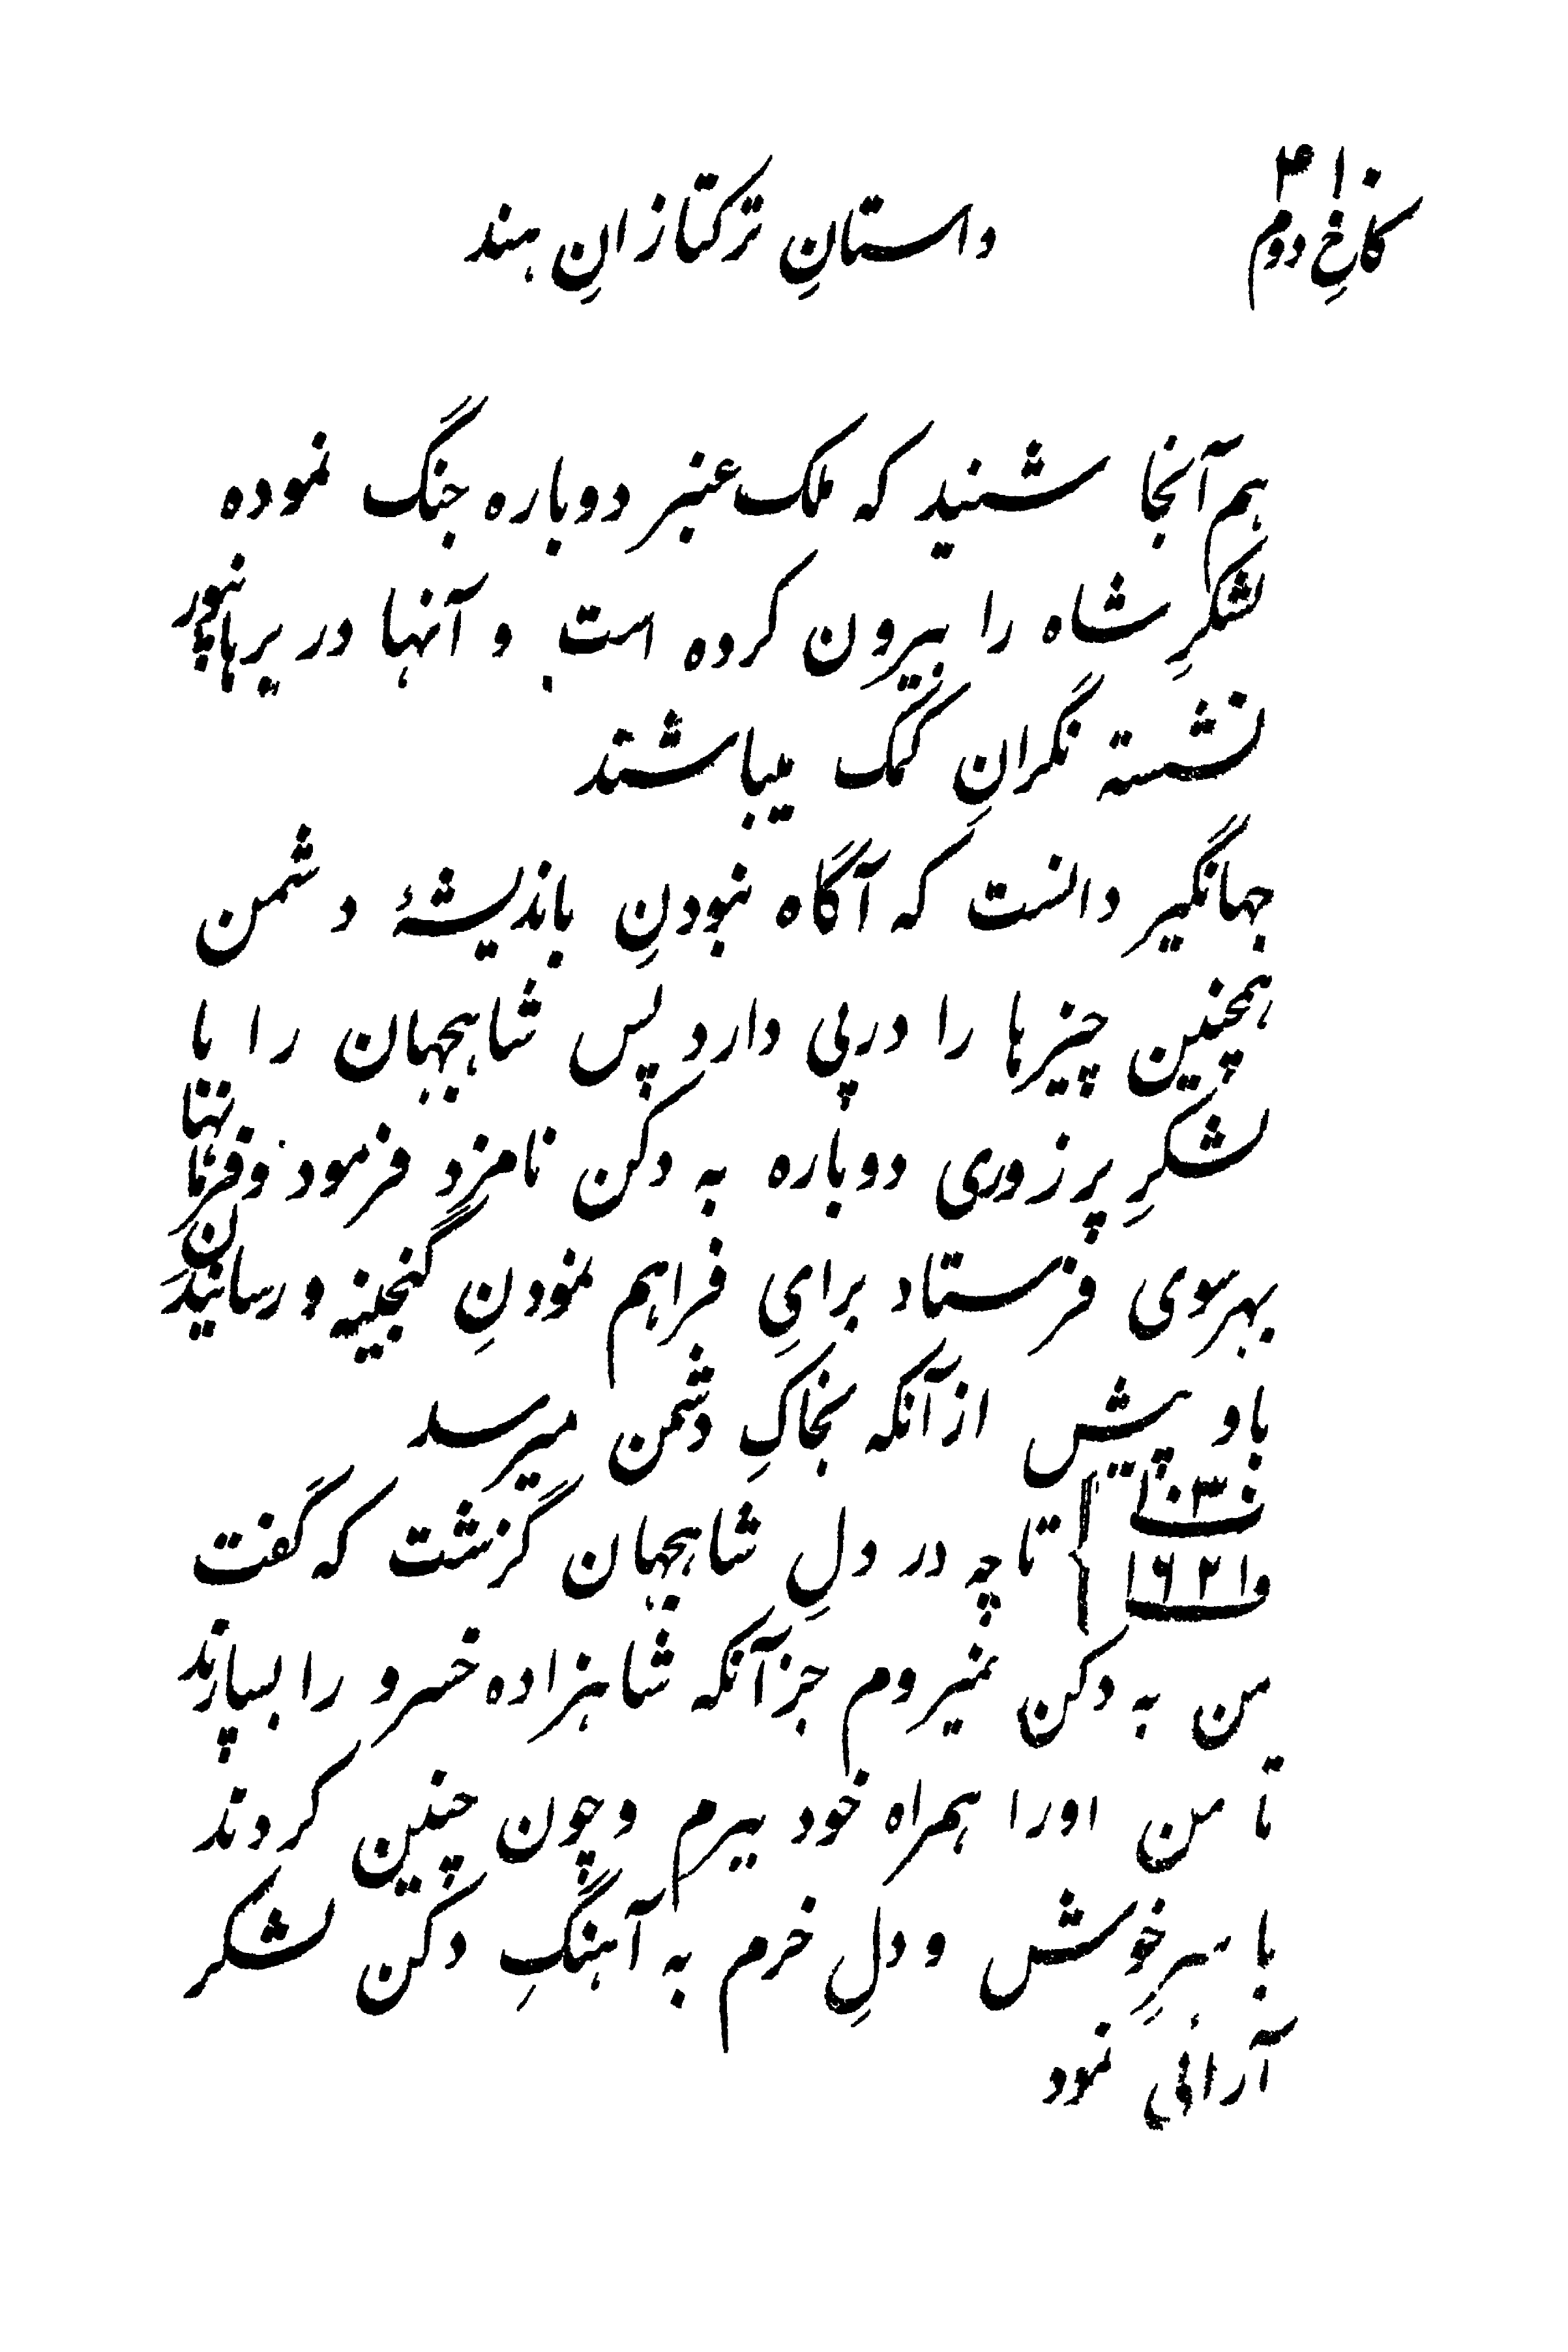 ۴۱
کاخِ دوم
داستانِ ترکتازانِ هند
هم آنجا شنید که ملک عنبر دوباره جنگ نموده
لشکرِ شاه را بیرون کرده است و آنها در برهانپور
نشسته نگرانِ کمک میباشند
جهانگیر دانست که آگاه نبودنِ باندیشهٔ دشمن
همچنین چیزها را در پی دارد پس شاهجهان را با
لشکرِ پر زوری دوباره به دکن نامزد فرمود و فرمانها
بهر سوی فرستاد برایِ فراهم نمودنِ گنجینه و رسانیدن
باو پیش از آنکه بخاکِ دشمن میرسد
۱۰۳۰
۱۶۲۱ و } تا چه در دلِ شاهجهان گزشت که گفت
من به دکن نمیروم جز آنکه شاهزاده خسرو را بسپارند
تا من او را همراه خود ببرم و چون چنین کردند
با سرِ خوش و دلِ خرم به آهنگِ دکن لشکر
آرائی نمود